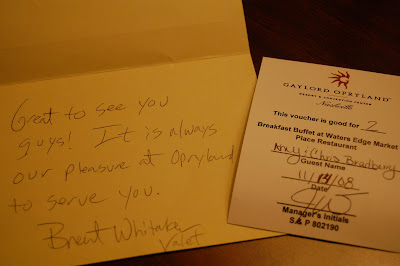 Great to see you
guys! It is always
our pleasure at Opryland
to serve you.
Brent Whitaker
Valet
GAYLORD OPRYLAND
RESORT & CONVENTION CENTER
Nashville
This voucher is good for 2
Breakfast Buffet at Waters Edge Market
Place Restaurant
Amy & Chris Bradbury
Guest Name
11/14/08
Date
Manager's Initials
S&P 802190